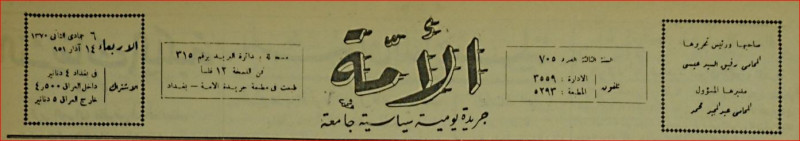 صاحبها ورئيس تحريرها
المحامي رفيق السيد عيسى
مديرها المسؤول
المحامي عبد المجيد محمد
السنة الثالثة العدد ٧٠٥
تلفون
الادارة : ٣٥٥٩
المطبعة : ٥٢٩٣
الأمة
جريدة يومية سياسية جامعة
مسجلة في دائرة البريد برقم ٣١٥
ثمن النسخة ١٢ فلساً
طبعت في مطبعة جريدة الامة – بغداد
٦ جمادى الثاني ١٣٧٠
الاربعاء ١٤ آذار ٩٥١
الاشتراك
في بغداد ٤ دنانير
داخل العراق ٤,٥٠٠
خارج العراق ٥ دنانير